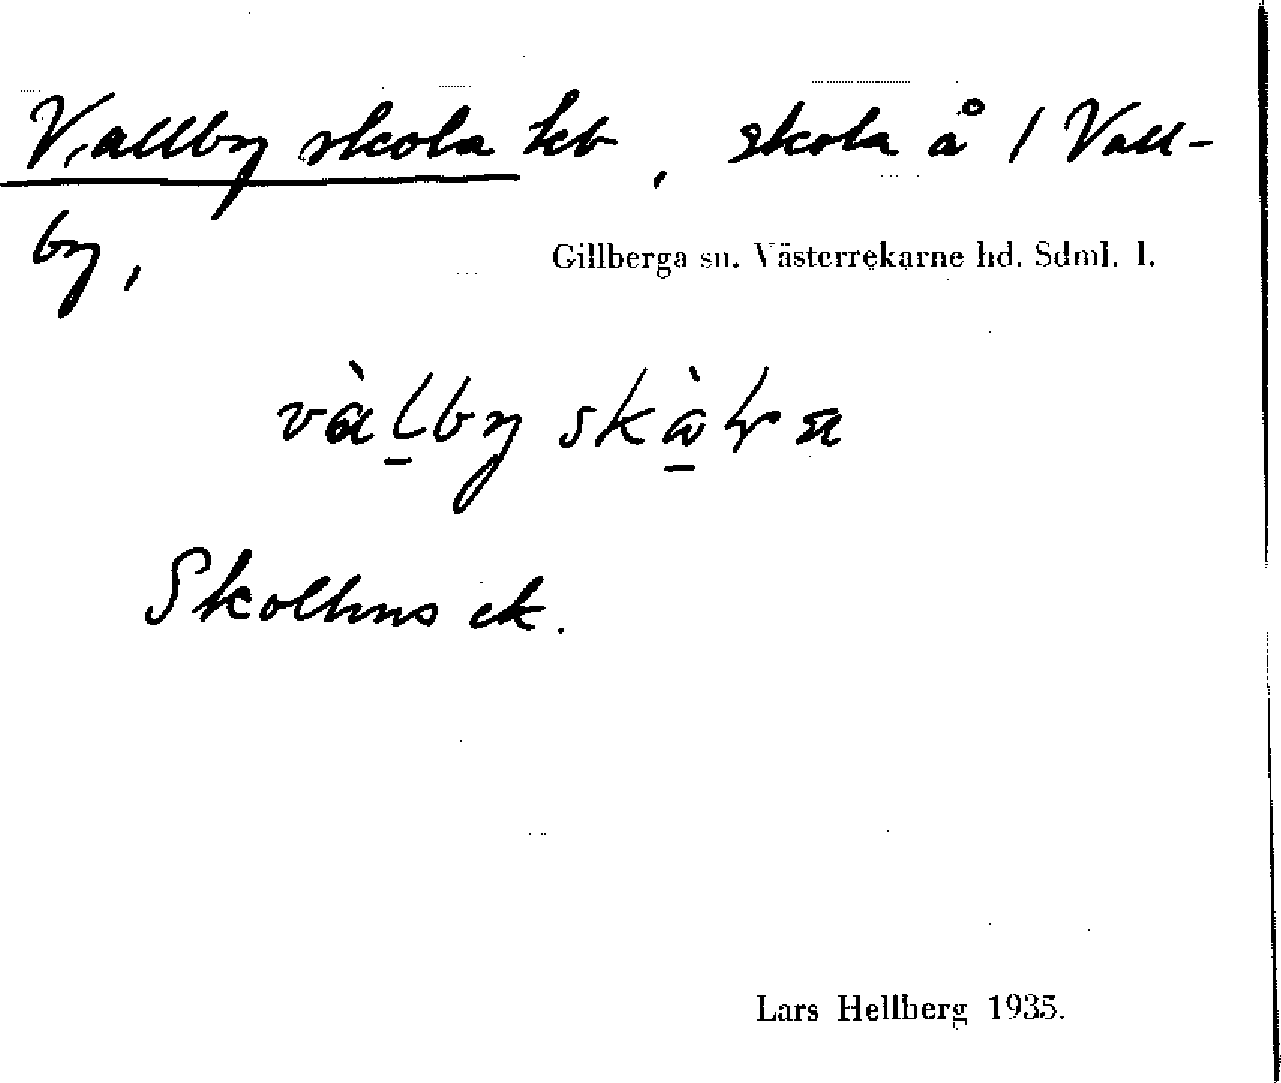 Vallby skola kb, skola å 1 Vall-
by,
Gillberga sn. Västerrekarne hd. Sdml. l.
Skolhus ek.
Lars Hellberg 1935.